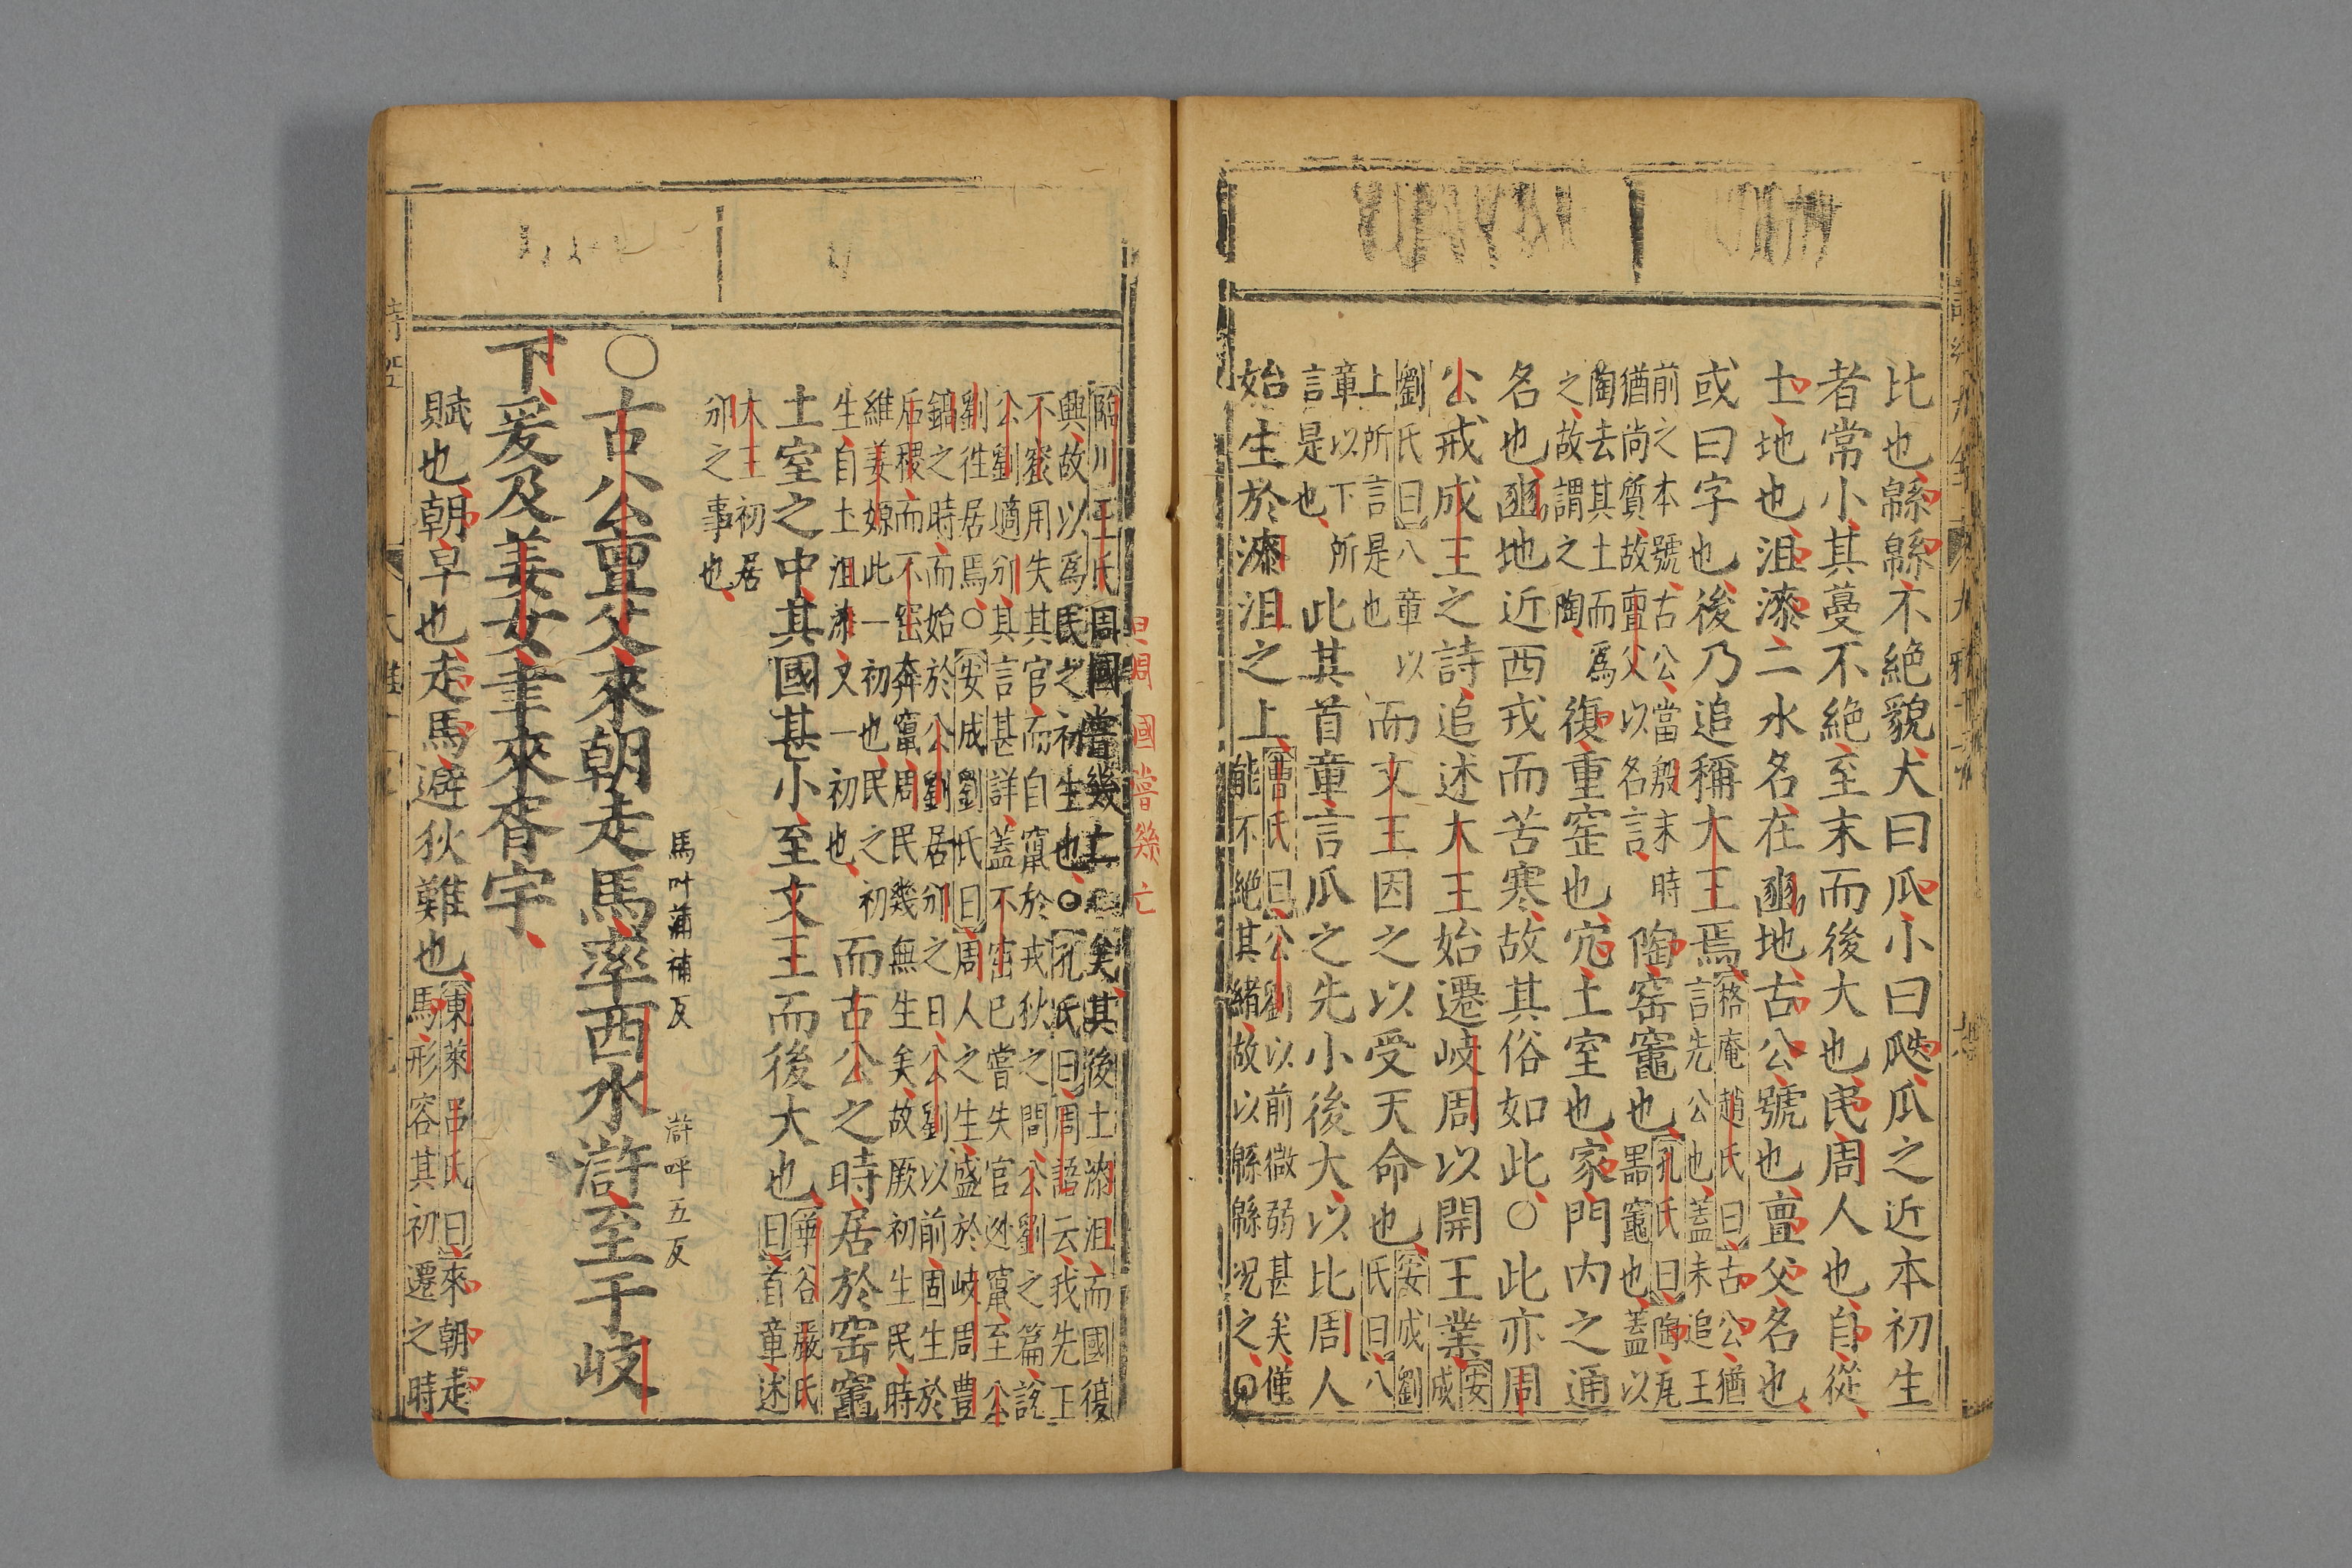 比也緜緜不絶貌大曰瓜小曰瓞瓜之近本初生
者常小其蔓不絶至末而後大也民周人也自從
土地也沮漆二水名在豳地古公號也亶父名也
或曰字也後乃追稱大王焉
格庵趙氏曰古公猶
言先公也蓋未追王
前之本號古公當殷末時
猶尚質故亶父以名言
陶窑竈也
孔氏曰陶瓦
器竈也蓋以
陶去其土而爲
之故謂之陶
復重窑也穴土室也家門内之通
名也豳地近西戎而苦寒故其俗如此○此亦周
公戒成王之詩追述大王始遷岐周以開王業
安
成
劉氏曰八章以
上所言是也
而文王因之以受天命也
安成劉
氏曰八
章以下所
言是也
此其首章言瓜之先小後大以比周人
始生於漆沮之上
曹氏曰公劉以前微弱甚矣僅
能不絶其緒故以緜緜况之○
臨川王氏周國嘗幾亡矣其後土漆沮而國復
興故以爲民之初生也○孔氏曰周語云我先王
不窋用失其官而自竄於戎狄之間公劉之篇說
公劉適邠其言甚詳蓋不窋已嘗失官逃竄至公
劉徃居焉○安成劉氏曰周人之生盛於岐周豊
鎬之時而始於公劉居邠之日公劉以前固生於
后稷而不窋奔竄周民幾無生矣故厥初生民時
維姜嫄此一初也民之初
生自土沮漆又一初也
而古公之時居於窑竈
土室之中其國甚小至文王而後大也
華谷嚴氏
曰首章述
大王初居
邠之事也
馬叶蒲補反
滸呼五反
○古公亶父來朝走馬率西水滸至于岐
下爰及姜女聿來胥宇
賦也朝早也走馬避狄難也
東萊呂氏曰來朝走
馬形容其初遷之時
周國嘗幾亡